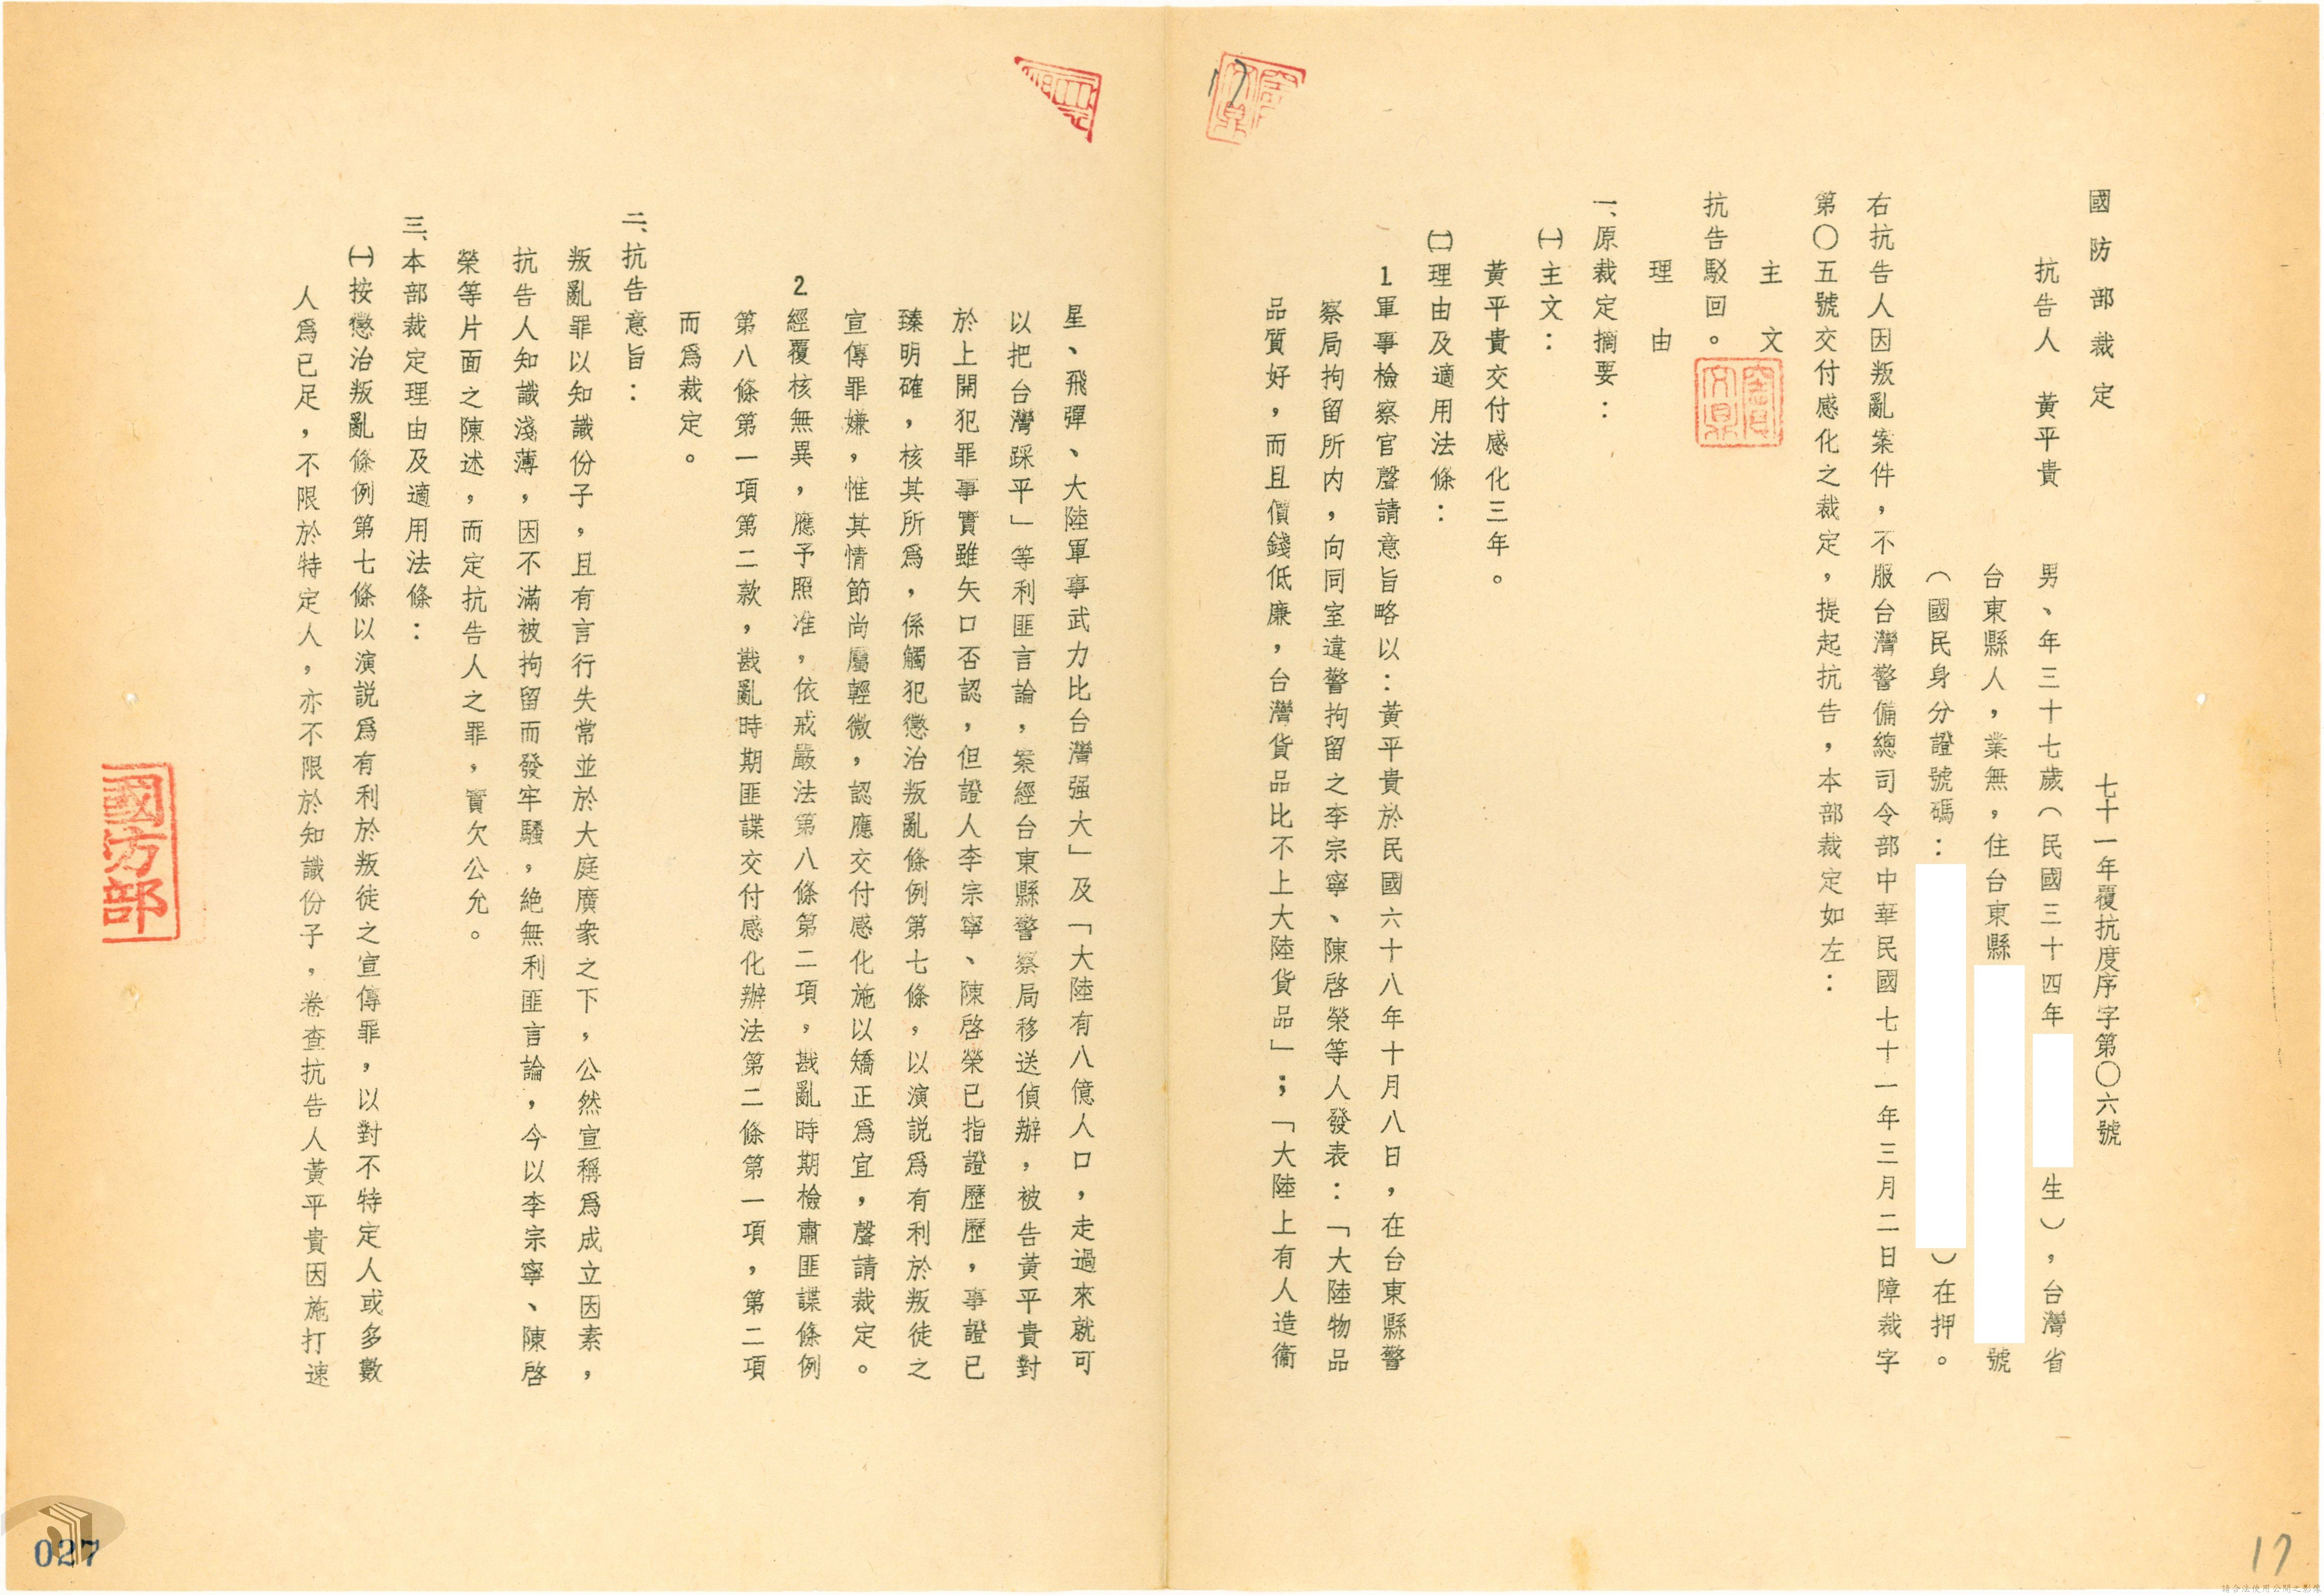 國防部裁定
七十一年覆抗度序字第〇六號
抗告人 黃平貴 男、年三十七歲（民國三十四年 生），台灣省
台東縣人，業無，住台東縣 號
（國民身分證號碼： ）在押。
右抗告人因叛亂案件，不服台灣警備總司令部中華民國七十一年三月二日障裁字
第〇五號交付感化之裁定，提起抗告，本部裁定如左：
主文
抗告駁回。
理由
一、原裁定摘要：
㈠主文：
黃平貴交付感化三年。
㈡理由及適用法條：
1.軍事檢察官聲請意旨略以：黃平貴於民國六十八年十月八日，在台東縣警
察局拘留所內，向同室違警拘留之李宗寧、陳啓榮等人發表：「大陸物品
品質好，而且價錢低廉，台灣貨品比不上大陸貨品」；「大陸上有人造衞
星、飛彈、大陸軍事武力比台灣强大」及「大陸有八億人口，走過來就可
以把台灣踩平」等利匪言論，案經台東縣警察局移送偵辦，被告黃平貴對
於上開犯罪事實雖矢口否認，但證人李宗寧、陳啓榮已指證歷歷，事證已
臻明確，核其所爲，係觸犯懲治叛亂條例第七條，以演説爲有利於叛徒之
宣傳罪嫌，惟其情節尚屬輕微，認應交付感化施以矯正爲宜，聲請裁定。
2.經覆核無異，應予照准，依戒嚴法第八條第二項，戡亂時期檢肅匪諜條例
第八條第一項第二款，戡亂時期匪諜交付感化辦法第二條第一項，第二項
而爲裁定。
二、抗告意旨：
叛亂罪以知識份子，且有言行失常並於大庭廣衆之下，公然宣稱爲成立因素，
抗告人知識淺薄，因不滿被拘留而發牢騷，絶無利匪言論，今以李宗寧、陳啓
榮等片面之陳述，而定抗告人之罪，實欠公允。
三、本部裁定理由及適用法條：
㈠按懲治叛亂條例第七條以演説爲有利於叛徒之宣傳罪，以對不特定人或多數
人爲已足，不限於特定人，亦不限於知識份子，卷查抗告人黃平貴因施打速
國防部
17
17
027
請合法使用公開之影像